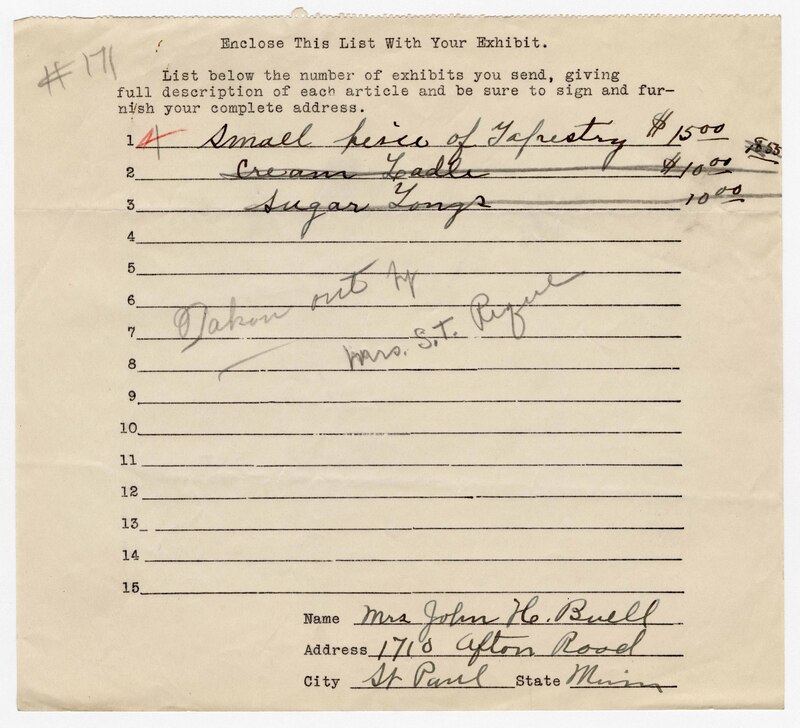 #171
Enclose This List With Your Exhibit.
List below the number of exhibits you send, giving
full description of each article and be sure to sign and fur-
nish your complete address.
1 Small peice of Tapestry $15.00
2 Cream Ladle $10.00
3 Sugar Tongs 10.00
4
5
6
7
8
9
10
11
12
13
14
15
Taken out by
Mrs. S.T.
Name Mrs John H. Buell
Address 1710 Afton Road
City St Paul State Minn